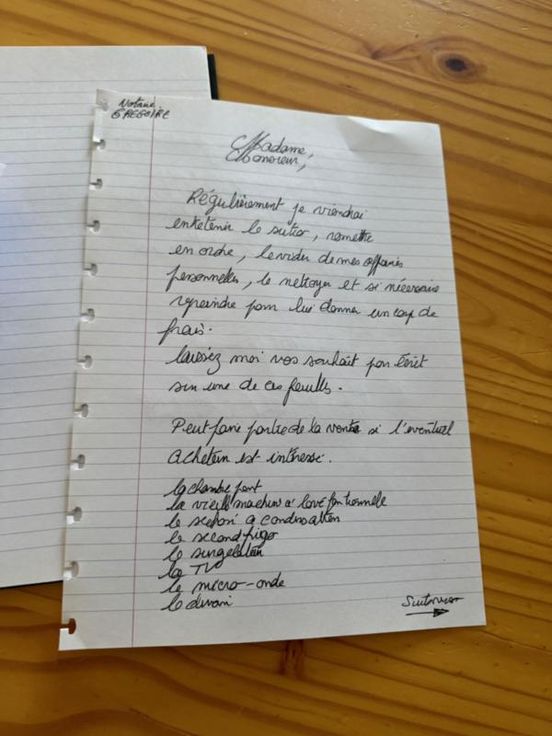 Notaire
GREGOIRE
Madame,
Monsieur,
Régulièrement je viendrai
entretenir le          , remettre
en ordre, le vider de mes affaires
personnelles, le nettoyer et si nécessaire
repeindre pour lui donner un coup de
frais.
Laissez moi vos souhait par Ecrit
sur une de ces feuilles.
Peut faire partie de la vente si l'éventuel
Acheteur est intéressé.
la chambre
la vieille machine a lavé
le            a condensation
le second frigo
le surgelateur
la TV
le micro-onde
le divan